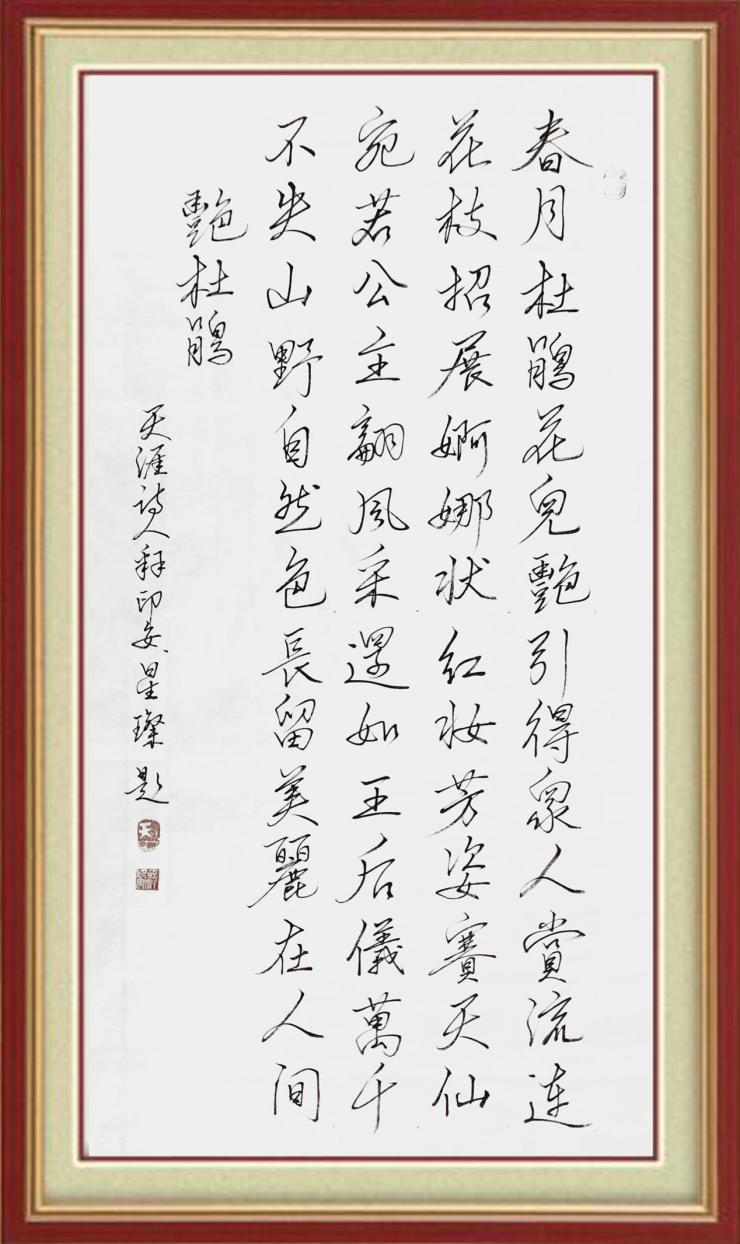 春月杜鵑花兒艷引得眾人賞流連
花枝招展婀娜狀紅妝芳姿賽天仙
宛若公主翩風采還如王后儀萬千
不失山野自然色長留美麗在人间
艷杜鵑
天涯詩人釋印安星璨題